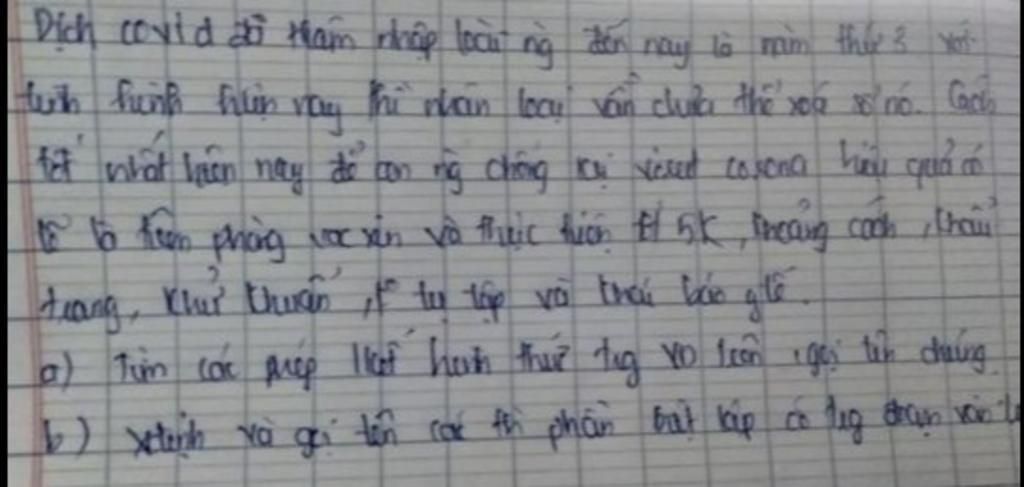 Dịch covid đã thâm nhập loài ng đến nay là năm thứ 3 với
tình hình hiện nay thì nhân loại vẫn chưa thể xoá sổ nó. Cách
tốt nhất hiện nay để con ng chống cự virut corona hiệu quả có
lẽ là tiêm phòng vacxin và thực hiện tốt 5K, khoảng cách, khẩu
trang, khử khuẩn, k tụ tập và khai báo y tế.
a) Tìm các phép lkết hình thức trg vb trên, gọi tên chúng.
b) xđịnh và gọi tên các th phần biệt lập có trg đoạn văn